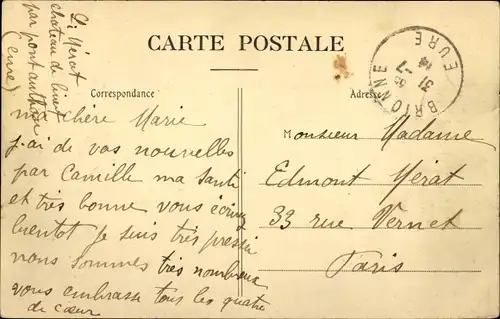 D. Mérat
chateau de
par pont authou
(Eure)
CARTE POSTALE
Correspondance
Adresse
BRIONNE
31 -7
14
EURE
ma chère Marie
j'ai de vos nouvelles
par Camille ma santé
et très bonne vous écrirez
bientôt je suis très pressée
nous sommes très nombreux
vous embrasse tous les quatre
de cœur
Monsieur Madame
Edmont Mérat
33 rue Vernet
Paris